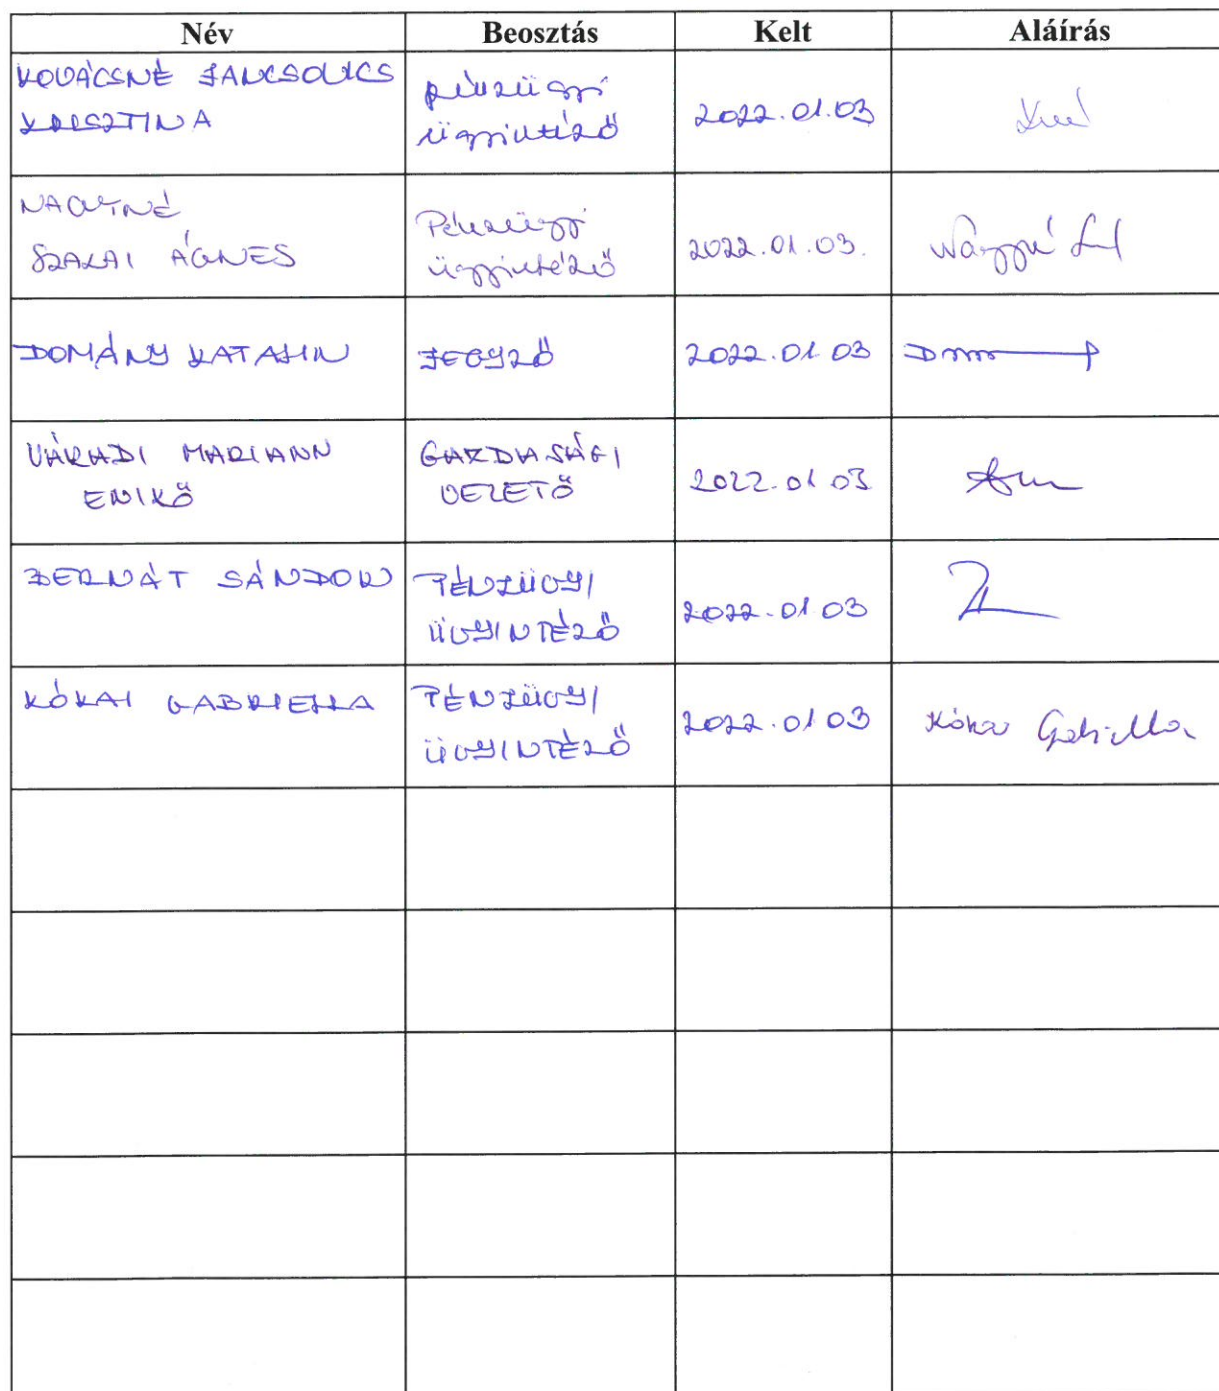 Név Beosztás Kelt Aláírás
KOVÁCSNÉ JANCSOVICS pénzügyi
KRISZTINA ügyintéző 2022.01.03
NAGYNÉ Pénzügyi
SZAKAI ÁGNES ügyintéző 2022.01.03. Nagyné
DOMÁNY KATALIN JEGYZŐ 2022.01.03
VÁRADI MARIANN GAZDASÁGI
ENIKŐ VEZETŐ 2022.01.03
BERNÁT SÁNDOR PÉNZÜGYI
ÜGYINTÉZŐ 2022.01.03
KÓKAI GABRIELLA PÉNZÜGYI
ÜGYINTÉZŐ 2022.01.03 Kókai Gabriella